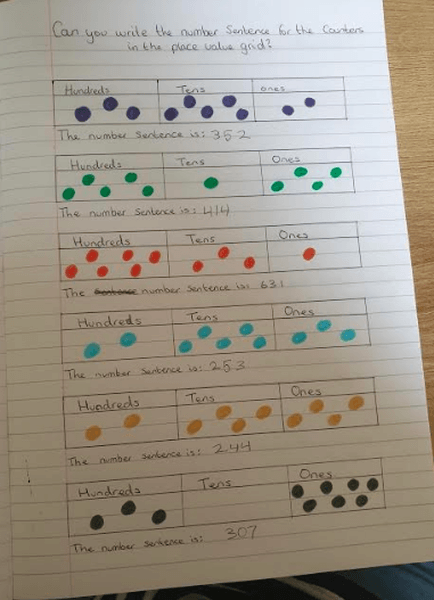 Can you write the number Sentence for the Counters
in the place value grid?
Hundreds Tens ones
The number sentence is: 352
Hundreds Tens Ones
The number sentence is: 414
Hundreds Tens Ones
The number sentence is: 631
Hundreds Tens Ones
The number sentence is: 253
Hundreds Tens Ones
The number sentence is: 244
Hundreds Tens Ones
The number sentence is: 307